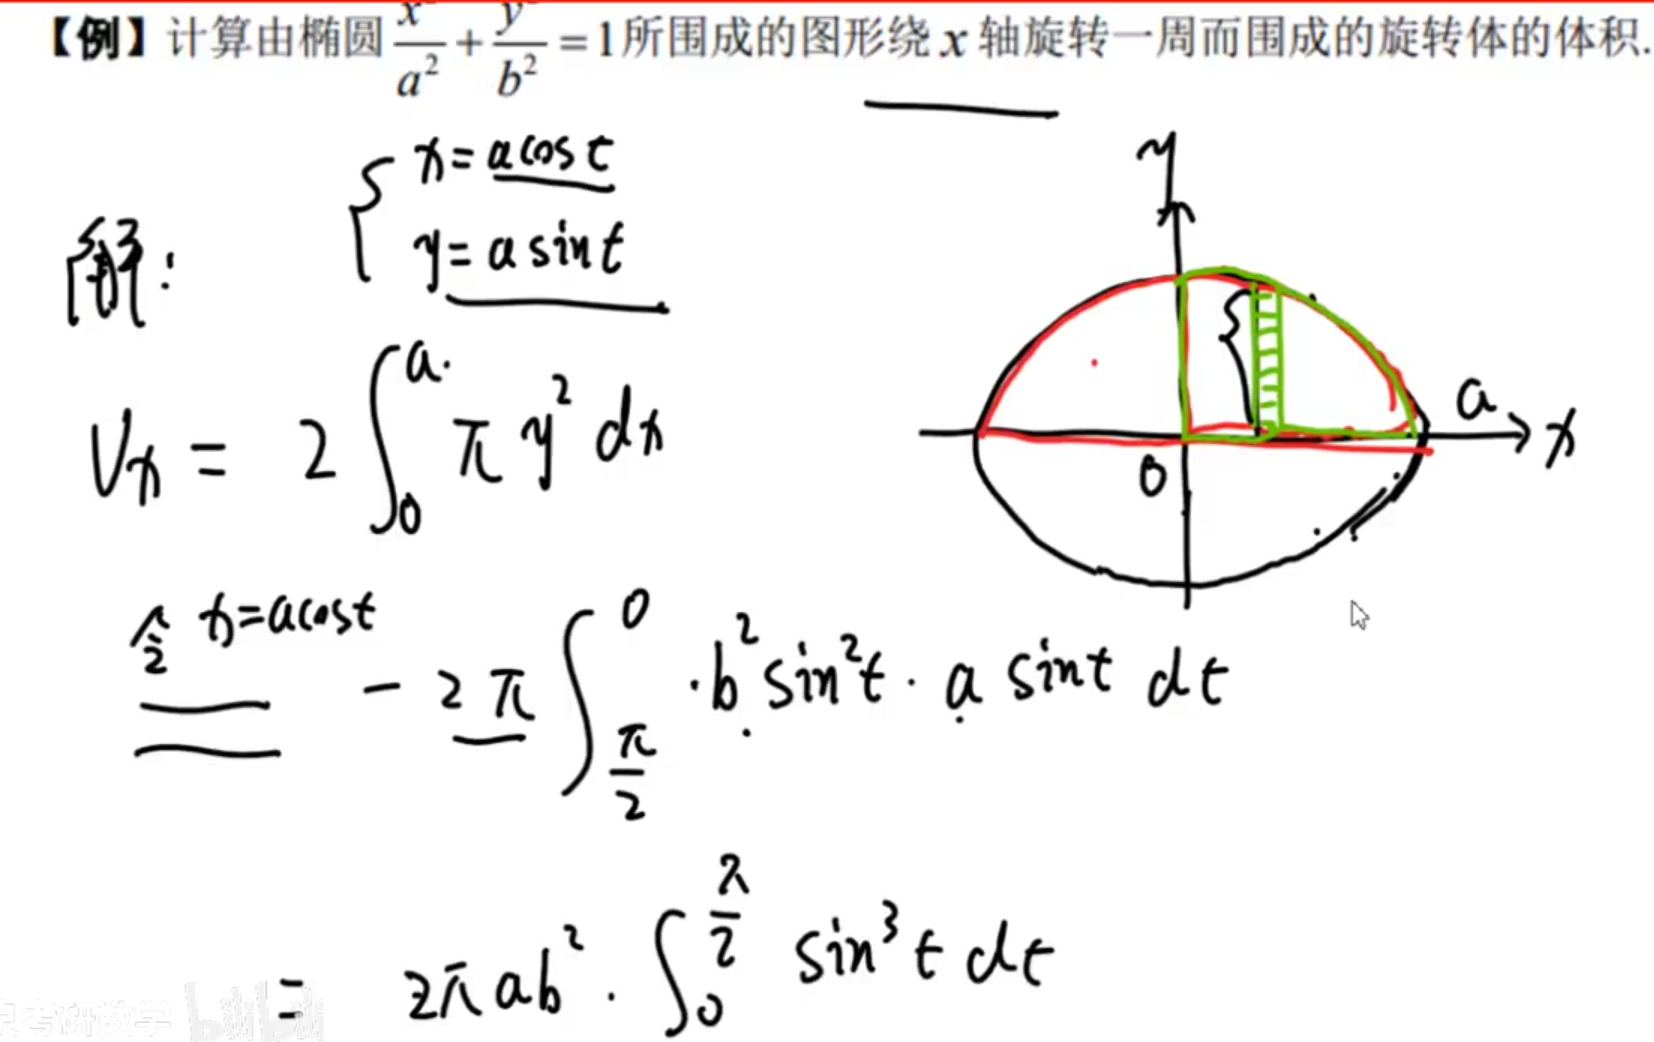 【例】计算由椭圆 x/a² + y/b² = 1 所围成的图形绕 x 轴旋转一周而围成的旋转体的体积.
解:
{ x = a cos t
y = a sin t
y
a
x
0
Vx = 2 ∫₀^a. π y² dx
令 x = a cos t
π/2
= - 2π ∫_{π/2}^0 · b² sin² t · a sin t dt
= 2π ab² · ∫₀^{π/2} sin³ t dt
考研数学 bilibili